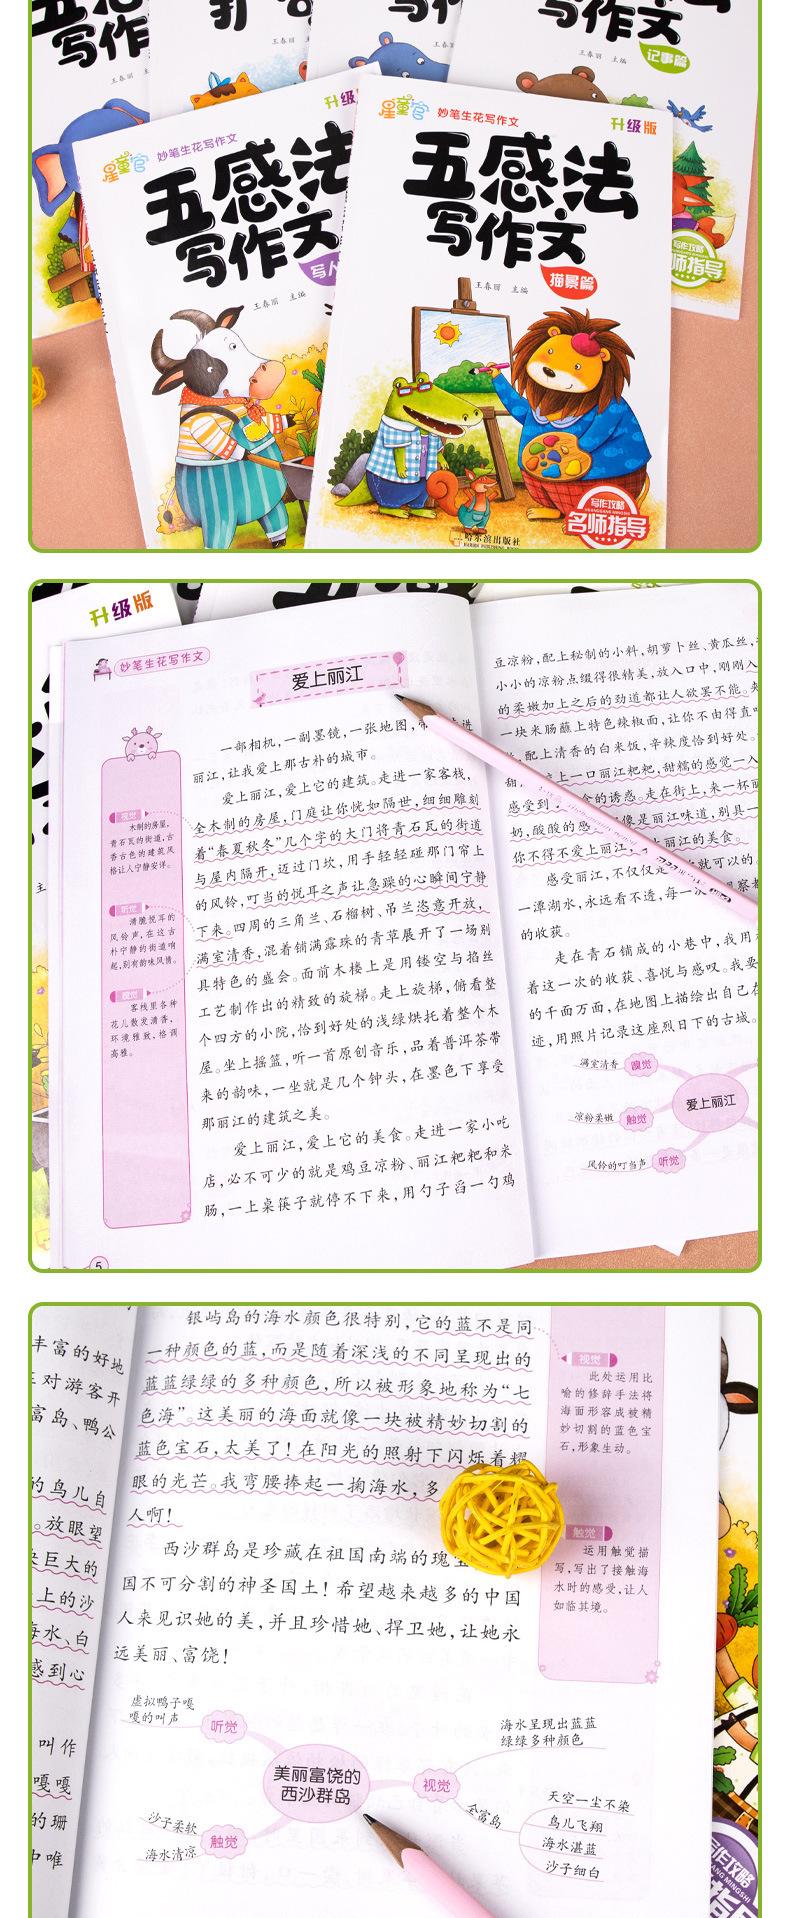 写作文
写作文
写作文
记事篇
王春丽 主编
王春丽 主编
王春丽 主编
升级版
星童官
妙笔生花写作文
五感法
写作文
王春丽 主编
星童官
妙笔生花写作文
升级版
五感法
写作文
描景篇
王春丽 主编
写作攻略
名师指导
哈尔滨出版社
写作攻略
师指导
升级版
妙笔生花写作文
爱上丽江
一部相机,一副墨镜,一张地图,
丽江,让我爱上那古朴的城市。
爱上丽江,爱上它的建筑。走进一家客栈,
全木制的房屋,门庭让你恍如隔世,细细雕刻
着“春夏秋冬”几个字的大门将青石瓦的街道
与屋内隔开,迈过门坎,用手轻轻碰那门帘上
的风铃,叮当的悦耳之声让急躁的心瞬间宁静
下来。四周的三角兰、石榴树、吊兰恣意开放,
满室清香,混着铺满露珠的青草展开了一场别
具特色的盛会。面前木楼上是用镂空与掐丝
工艺制作出的精致的旋梯。走上旋梯,俯看整
个四方的小院,恰到好处的浅绿烘托着整个木
屋。坐上摇篮,听一首原创音乐,品着普洱茶带
来的韵味,一坐就是几个钟头,在墨色下享受
那丽江的建筑之美。
爱上丽江,爱上它的美食。走进一家小吃
店,必不可少的就是鸡豆凉粉、丽江粑粑和米
肠,一上桌筷子就停不下来,用勺子舀一勺鸡
视觉
木制的房屋,
青石瓦的街道,古
香古色的建筑风
格让人宁静安详。
听觉
清脆悦耳的
风铃声,在这古
朴宁静的街道响
起,别有韵味风情。
嗅觉
客栈里各种
花儿散发清香,
环境雅致,格调
高雅。
5
豆凉粉,配上秘制的小料,胡萝卜丝、黄瓜丝,
小小的凉粉点缀得很精美,放入口中,刚刚入
的柔嫩加上之后的劲道都让人欲罢不能。夹
一块米肠蘸上特色辣椒面,让你不由得直
配上清香的白米饭,辛辣度恰到好处。
上一口丽江粑粑,甜糯的感觉一入
感受到
的诱惑。走在街上,来一杯
奶,酸酸的感
像是丽江味道,别具一
你不得不爱上丽江,
上丽江的美食。
感受丽江,不仅仅
就可以的。
一潭湖水,永远看不透,每一
的收获。
走在青石铺成的小巷中,我用
着这一次的收获、喜悦与感叹。我要
的千面万面,在地图上描绘出自己在
迹,用照片记录这座烈日下的古城。
满室清香
嗅觉
凉粉柔嫩
触觉
爱上丽江
风铃的叮当声
听觉
丰富的好地
对游客开
富岛、鸭公
的鸟儿自
。放眼望
巨大的
上的沙
海水、白
感到心
叫作
嘎嘎
的珊
中唯
银屿岛的海水颜色很特别,它的蓝不是同
一种颜色的蓝,而是随着深浅的不同呈现出的
蓝蓝绿绿的多种颜色,所以被形象地称为“七
色海”。这美丽的海面就像一块被精妙切割的
蓝色宝石,太美了!在阳光的照射下闪烁着耀
眼的光芒。我弯腰捧起一掬海水,多
人啊!
西沙群岛是珍藏在祖国南端的瑰宝
国不可分割的神圣国土!希望越来越多的中国
人来见识她的美,并且珍惜她、捍卫她,让她永
远美丽、富饶!
视觉
此处运用比
喻的修辞手法将
海面形容成被精
妙切割的蓝色宝
石,形象生动。
触觉
运用触觉描
写,写出了接触海
水时的感受,让人
如临其境。
虚拟鸭子嘎
嘎的叫声
听觉
美丽富饶的
西沙群岛
沙子柔软
海水清凉
触觉
视觉
海水呈现出蓝蓝
绿绿多种颜色
全富岛
天空一尘不染
鸟儿飞翔
海水湛蓝
沙子细白
写作攻略